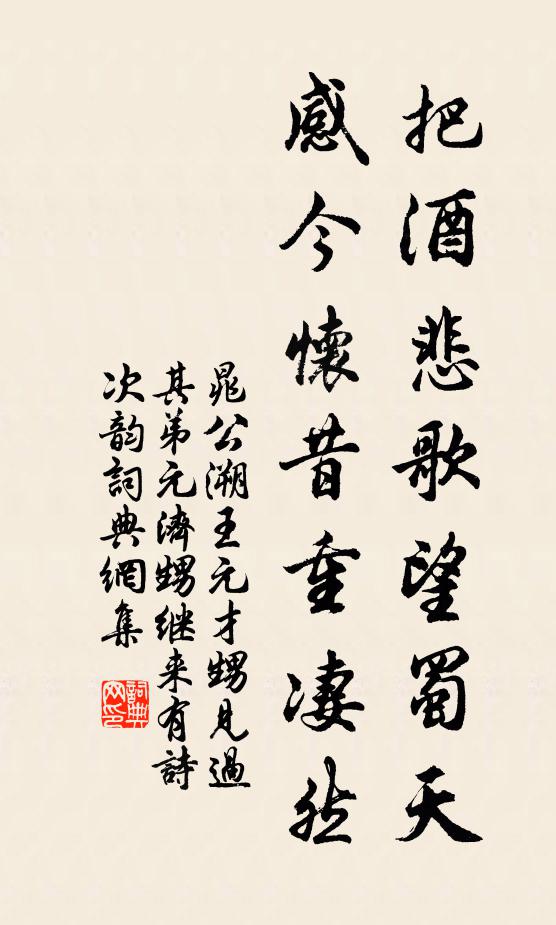 把酒悲歌望蜀天
感今懷昔重凄然
晁公溯王元才甥見過
其弟元濟甥继来有詩
次韵詞典網集
詞典网印